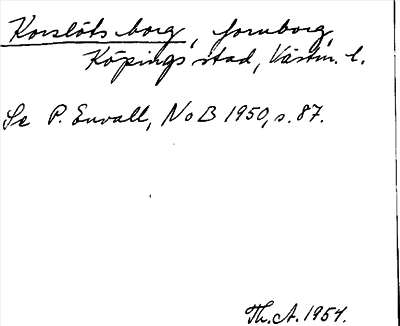 Korslöts borg, fornborg,
Köpings stad, Västm. l.
Se P. Envall, NoB 1950, s. 87.
Th. A. 1954.